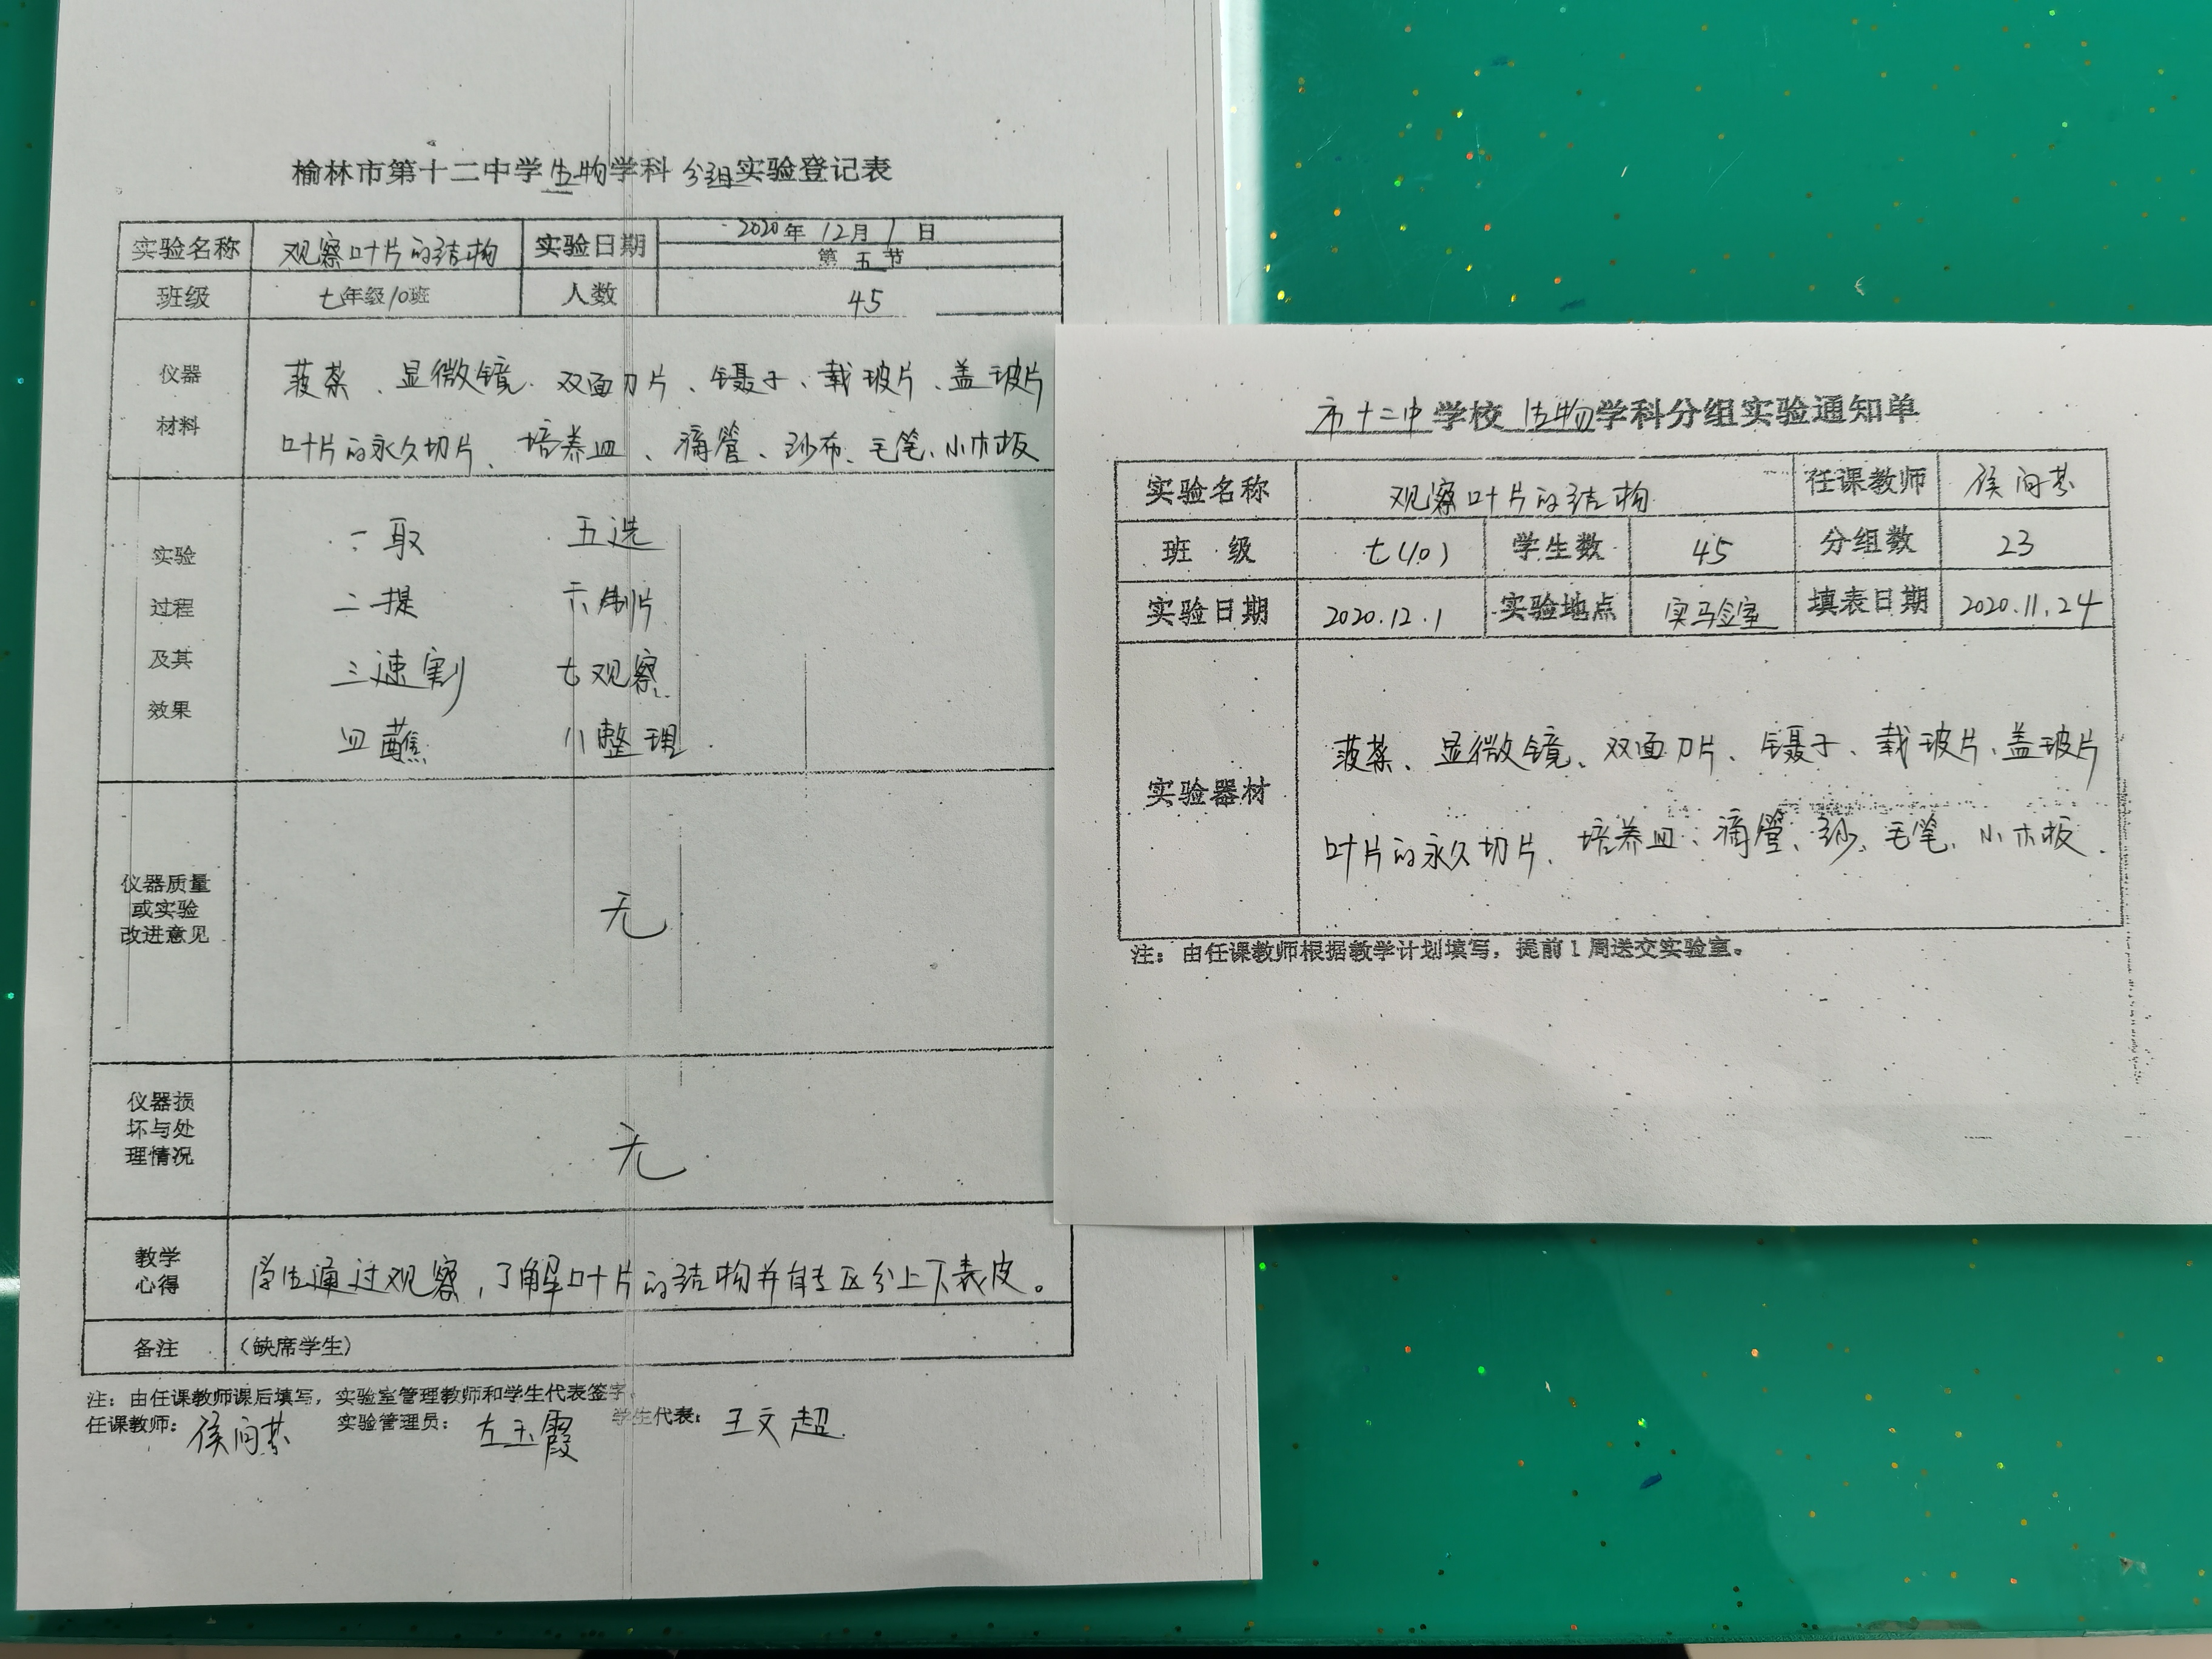 榆林市第十二中学生物学科分组实验登记表
实验名称 观察叶片的结构 实验日期 2020年12月1日
第五节
班级 七年级10班 人数 45
仪器 菠菜、显微镜、双面刀片、镊子、载玻片、盖玻片
材料 叶片的永久切片、培养皿、滴管、纱布、毛笔、小木板
实验 一取 五选
过程 二提 六制片
及其 三速割 七观察
效果 四蘸 八整理
仪器质量
或实验 无
改进意见
仪器损
坏与处 无
理情况
教学
心得 学生通过观察,了解叶片的结构并能区分上下表皮。
备注 (缺席学生)
注:由任课教师课后填写,实验室管理教师和学生代表签字。
任课教师: 侯向 实验管理员: 左玉霞 学生代表: 王文超
市十二中学校生物学科分组实验通知单
实验名称 观察叶片的结构 任课教师 侯向
班 级 七(10) 学生数 45 分组数 23
实验日期 2020.12.1 实验地点 实验室 填表日期 2020.11.24
菠菜、显微镜、双面刀片、镊子、载玻片、盖玻片
实验器材
叶片的永久切片、培养皿、滴管、纱、毛笔、小木板.
注:由任课教师根据教学计划填写,提前1周送交实验室。